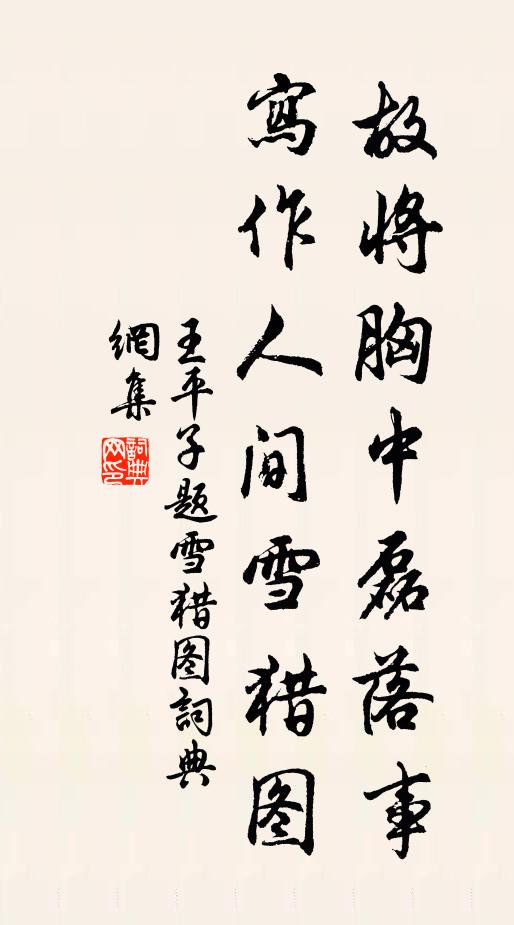 故將胸中磊落事
寫作人间雪猎图
王平子题雪猎图詞典
網集
詞典网印